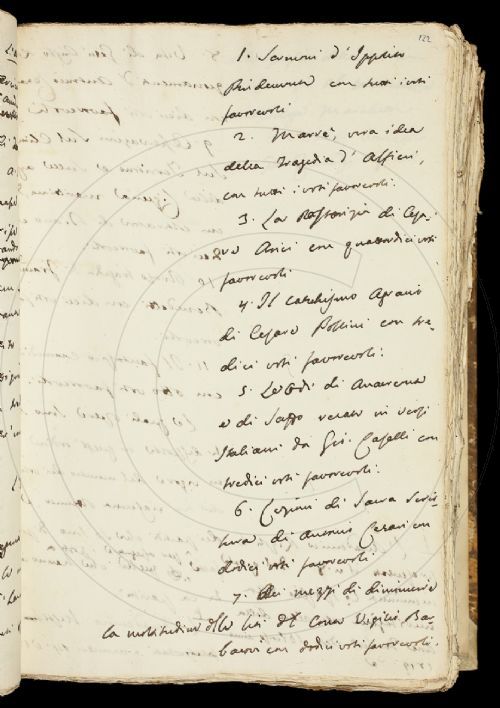 122
1. Sermoni d'Ippolito
Pindemonte con tutti i voti
favorevoli
2. Marrè, vera idea
della Tragedia d'Alfieri,
con tutti i voti favorevoli.
3. La Pastorizia di Cesa-
re Arici con quattordici voti
favorevoli
4. Il catechismo Agrario
di Cesare Bollini con tre-
dici voti favorevoli.
5. Le Odi di Anacreonte
e di Saffo recate in versi
Italiani da Gio. Caselli con
tredici voti favorevoli.
6. Lezioni di Sacra Scrit-
tura di Antonio Cesari con
dodici voti favorevoli
7. Dei mezzi di diminuire
la moltitudine delle liti del Conte Vigilio Ba-
bacovi con dodici voti favorevoli.